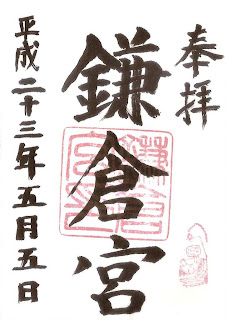 奉拝
鎌倉宮
平成二十三年五月五日